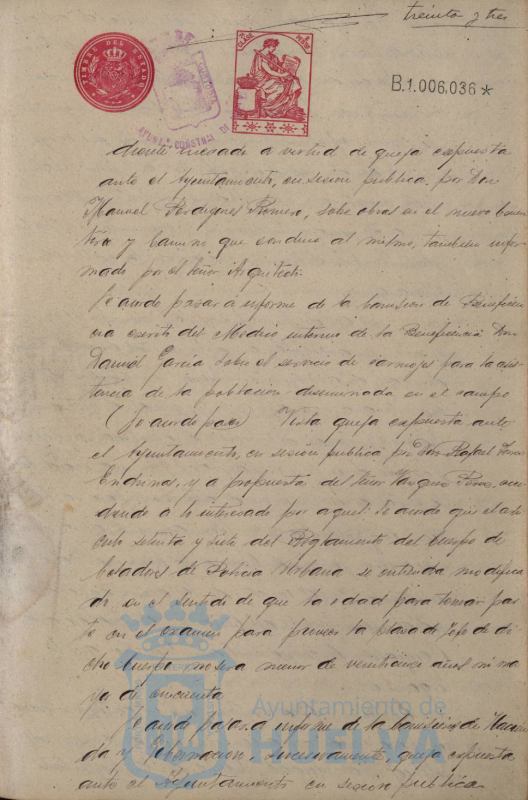 treinta y tres
TIMBRE DEL ESTADO
CLASE
B.1.006,036*
AYUNT. CONSTNAL DE
diente incoado a virtud de queja expuesta
ante el Ayuntamiento, en sesión publica, por Don
Manuel Perdigués Romero, sobre obras en el nuevo cemen
terio y camino que conduce al mismo, también infor
mado por el Señor Arquitecto.
Se acordo pasar a informe de la Comision de Beneficen
cia escrito del Medico interino de la Beneficencia Don
Daniel Garcia sobre el servicio de carruajes para la asis
tencia de la poblacion diseminada en el campo
(Se acordo pase) Vista queja expuesta ante
el Ayuntamiento, en sesión publica por Don Rafael
Endrinas, y a propuesta del Señor Vazquez Perez, acce
diendo a lo interesado por aquel: Se acordo que el arti
culo setenta y siete del Reglamento del Cuerpo de
Celadores de Policia Urbana se entienda modifica
do en el sentido de que la edad para tomar par
te en el examen para proveer la plaza de Jefe de di
cho Cuerpo no sera menor de veinticinco años ni ma
yor de cincuenta
Se acordo pasar a informe de la Comisiones de Hacien
da y Gobernacion, sucesivamente, queja expuesta
ante el Ayuntamiento en sesión publica
Ayuntamiento de
HUELVA